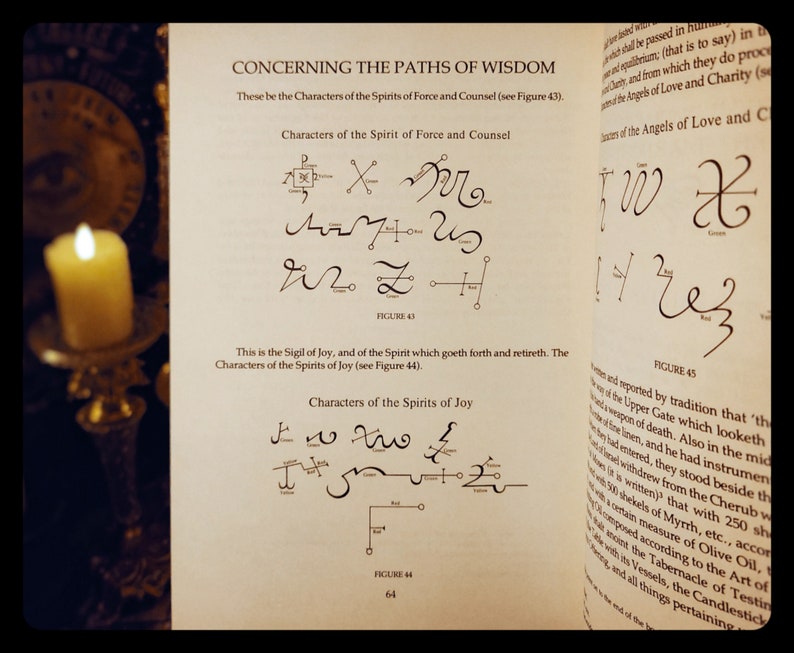 CONCERNING THE PATHS OF WISDOM
These be the Characters of the Spirits of Force and Counsel (see Figure 43).
Characters of the Spirit of Force and Counsel
Green
Yellow
Green
Green
Green
Red
Red
Green
Red
Red
Green
Green
Green
Red
FIGURE 43
This is the Sigil of Joy, and of the Spirit which goeth forth and retireth. The
Characters of the Spirits of Joy (see Figure 44).
Characters of the Spirits of Joy
Green
Green
Green
Green
Yellow
Red
Red
Yellow
Green
Green
Yellow
Yellow
Red
Red
FIGURE 44
64
have fasted with
which shall be passed in humility
and equilibrium; (that is to say) in
and Charity, and from which they do
of the Angels of Love and Charity
of the Angels of Love and
Green
Green
Yellow
Red
Red
FIGURE 45
written and reported by tradition that 'the
way of the Upper Gate which looketh
hand a weapon of death. Also in the
of fine linen, and he had
they had entered, they stood beside the
Lord of Israel withdrew from the Cherub
Moses (it is written)³ that with 250
with 500 shekels of Myrrh, etc.,
with a certain measure of Olive Oil,
Oil composed according to the Art of
shalt anoint the Tabernacle of
the Table with its Vessels, the Candlestick
Offering, and all things pertaining
to the end of the